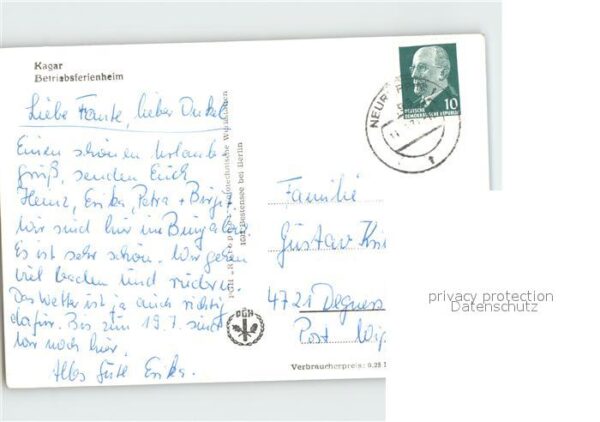 Kagar
Betriebsferienheim
Liebe Tante, lieber Onkel
Einen schönen Urlaubs
gruß, senden Euch
Heinz, Erika, Petra + Birgit.
Wir sind hier im Bungalow.
Es ist sehr schön. Wir gehen
viel baden und rudern.
Das Wetter ist ja auch richtig
dafür. Bis zum 19.7. sind
wir noch hier.
Alles Gute Erika.
PGH
1601 Bestensee bei Berlin
10
DEUTSCHE
DEMOKRATISCHE REPUBLIK
NEUR
Familie
Gustav
4721
Post
Verbraucherpreis: 0,25
privacy protection
Datenschutz